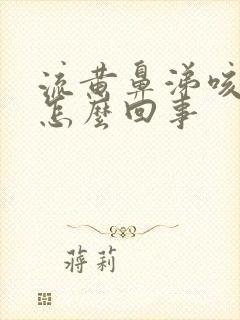 流黄鼻涕咳
怎麼回事
蔣莉